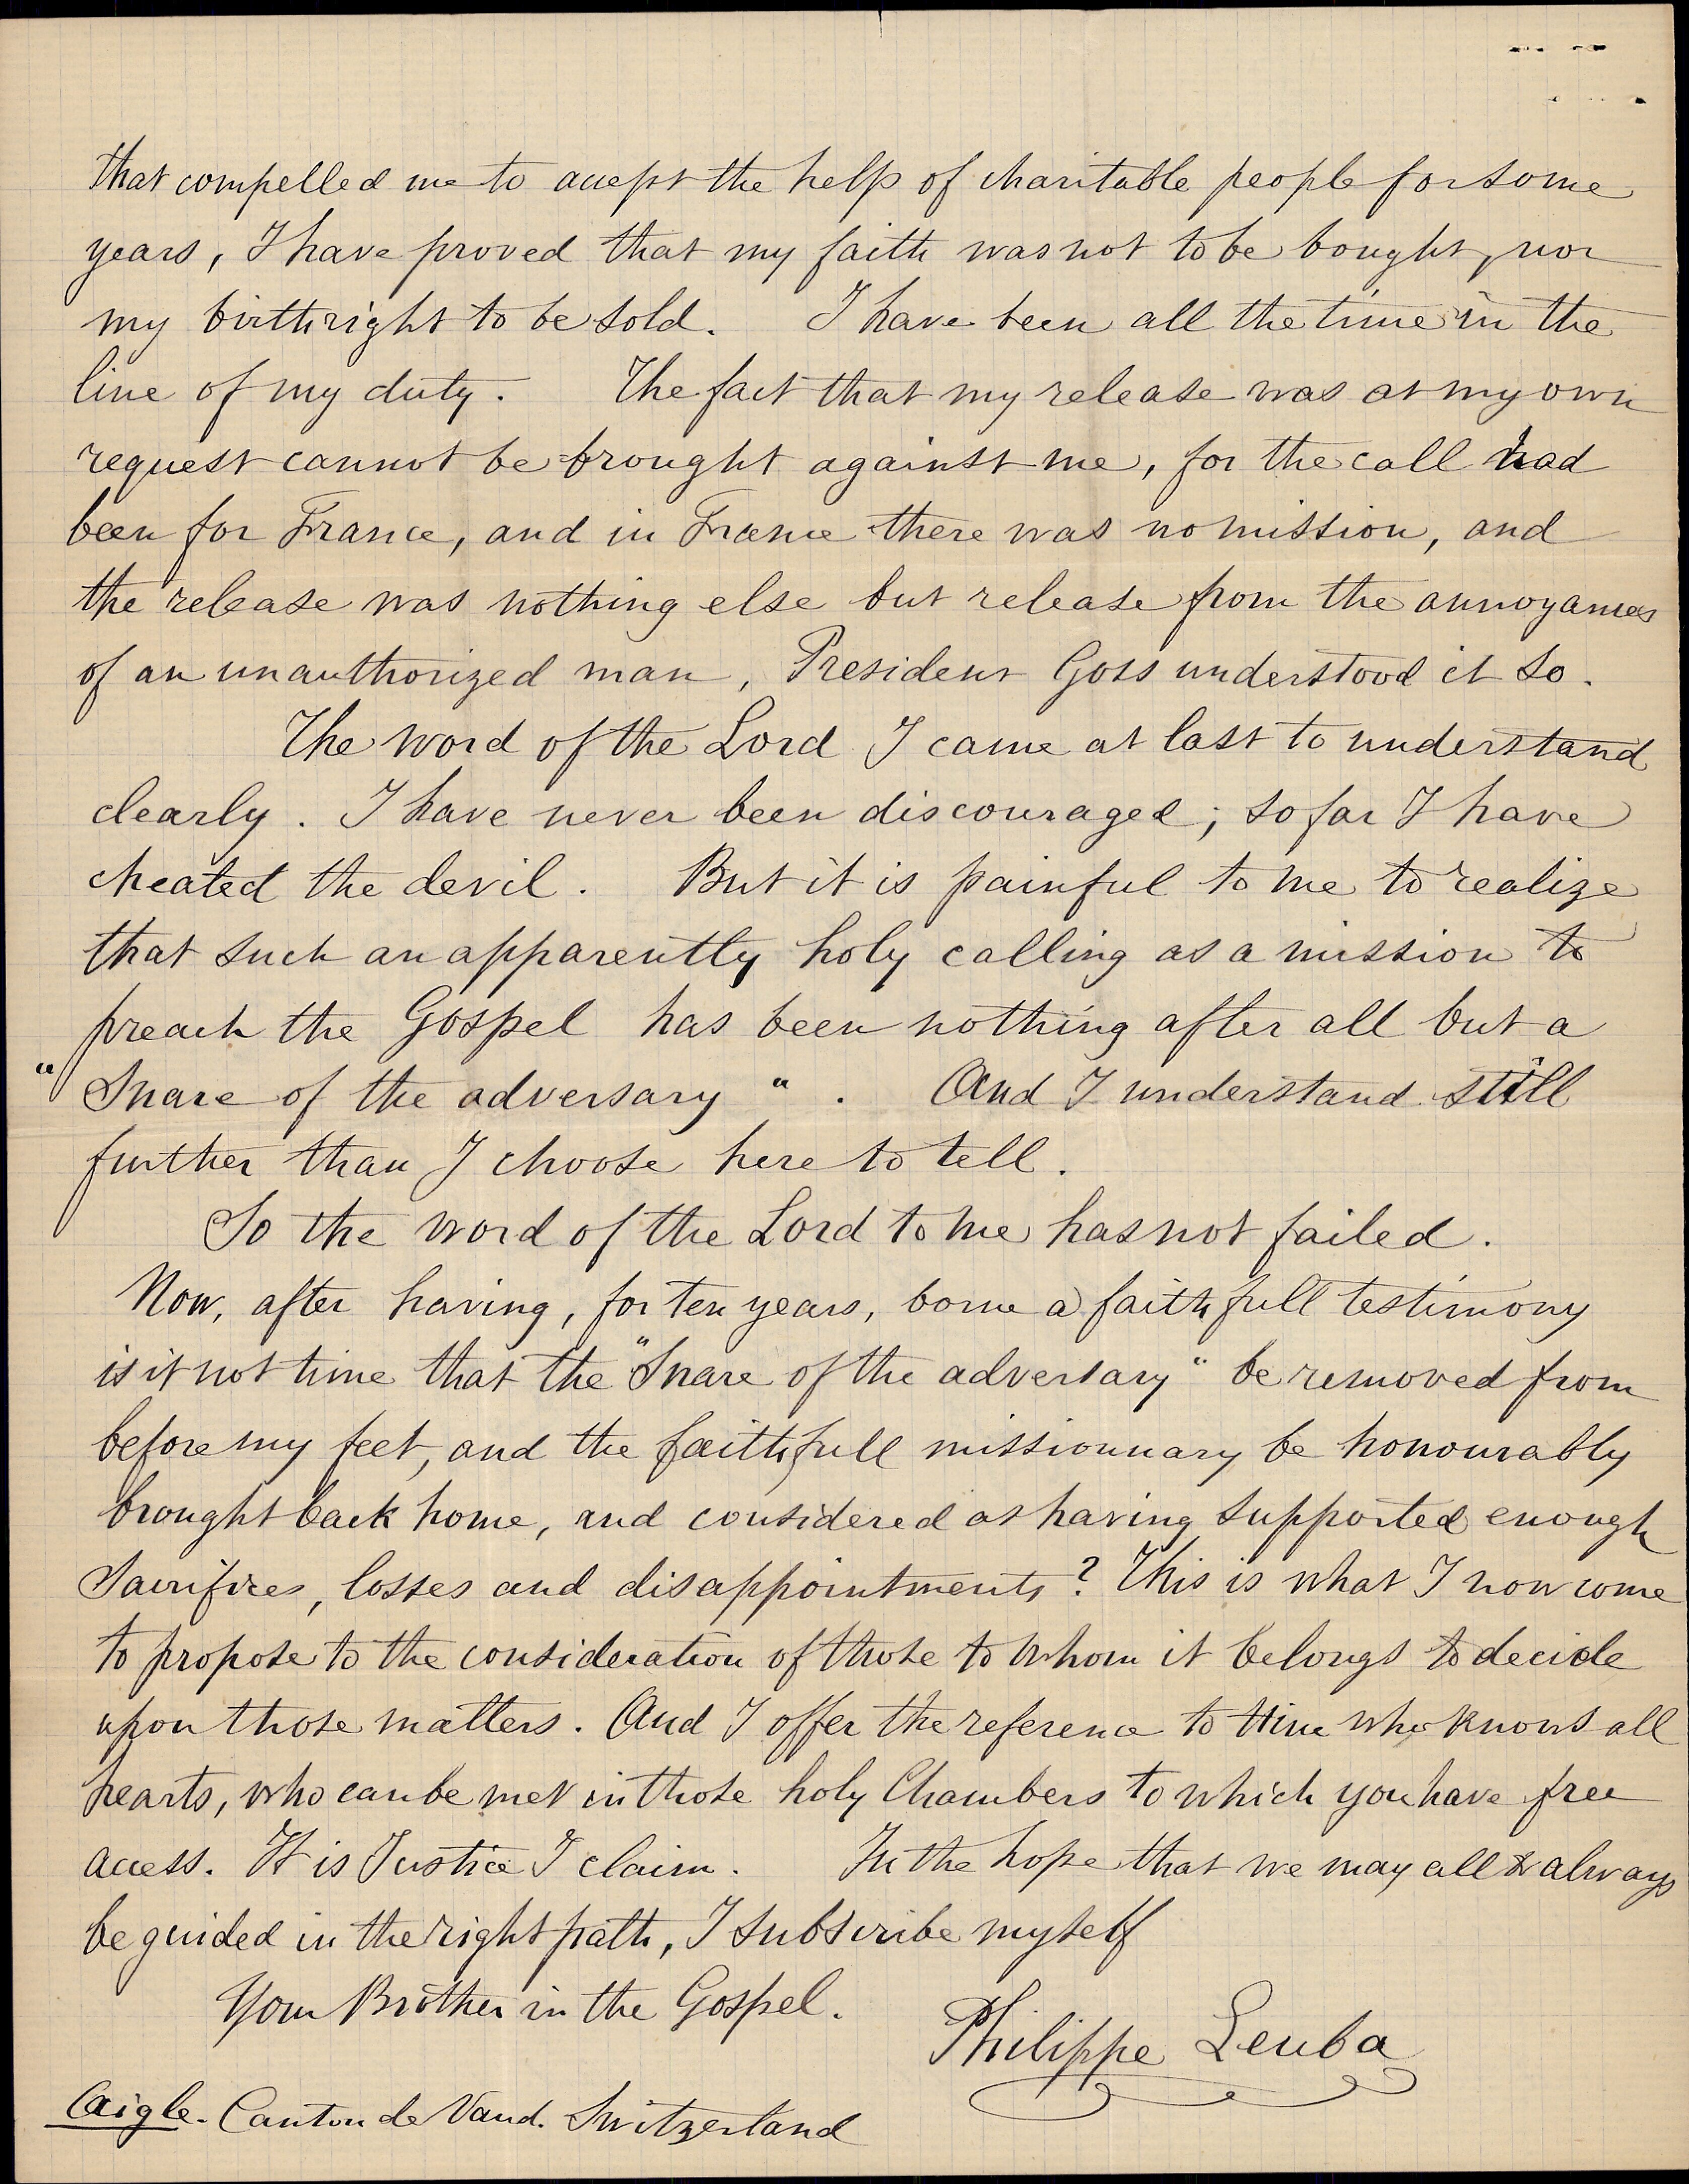 that compelled me to accept the help of charitable people for some
years, I have proved that my faith was not to be bought, nor
my birthright to be sold. I have been all the time in the
line of my duty. The fact that my release was at my own
request cannot be brought against me, for the call had
been for France, and in France there was no mission, and
the release was nothing else but release from the annoyances
of an unauthorized man, President Goss understood it so.
The word of the Lord I came at last to understand
clearly. I have never been discouraged; so far I have
cheated the devil. But it is painful to me to realize
that such an apparently holy calling as a mission to
preach the Gospel has been nothing after all but a
"Snare of the adversary". And I understand still
further than I choose here to tell.
So the word of the Lord to me has not failed.
Now, after having, for ten years, borne a faithfull testimony
is it not time that the "Snare of the adversary" be removed from
before my feet, and the faithfull missionnary be honourably
brought back home, and considered as having supported enough
Sacrifices, losses and disappointments? This is what I now come
to propose to the consideration of those to whom it belongs to decide
upon those matters. And I offer the reference to Him who knows all
hearts, who can be met in those holy Chambers to which you have free
access. It is Justice I claim. In the hope that we may all & always
be guided in the right path, I subscribe myself
Your Brother in the Gospel.
Philippe Leuba
Aigle. Canton de Vaud. Switzerland